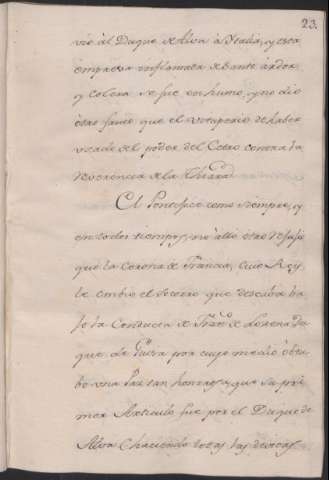 23.
vió al Duque de Alva à Ytalia, y esta
empresa inflamada de tante ardor,
y colera se fue en humo, y no dio
otro fruto que el vituperio de haber
usado el poder del Cetro contra la
Reverencia de la Thiara.
El Pontifice como siempre, y
en todos tiempos, no alló otro refugio
que la Corona de Francia, cuio Rey
le embio el socorro que deseaba ba
jo la Conducta de Franco de Lorena Du
que de Guisa por cuyo medio obtu
bo una Paz tan honrrosa, que su pri
mer Articulo fue por el Duque de
Alva haciendo todas las devidas